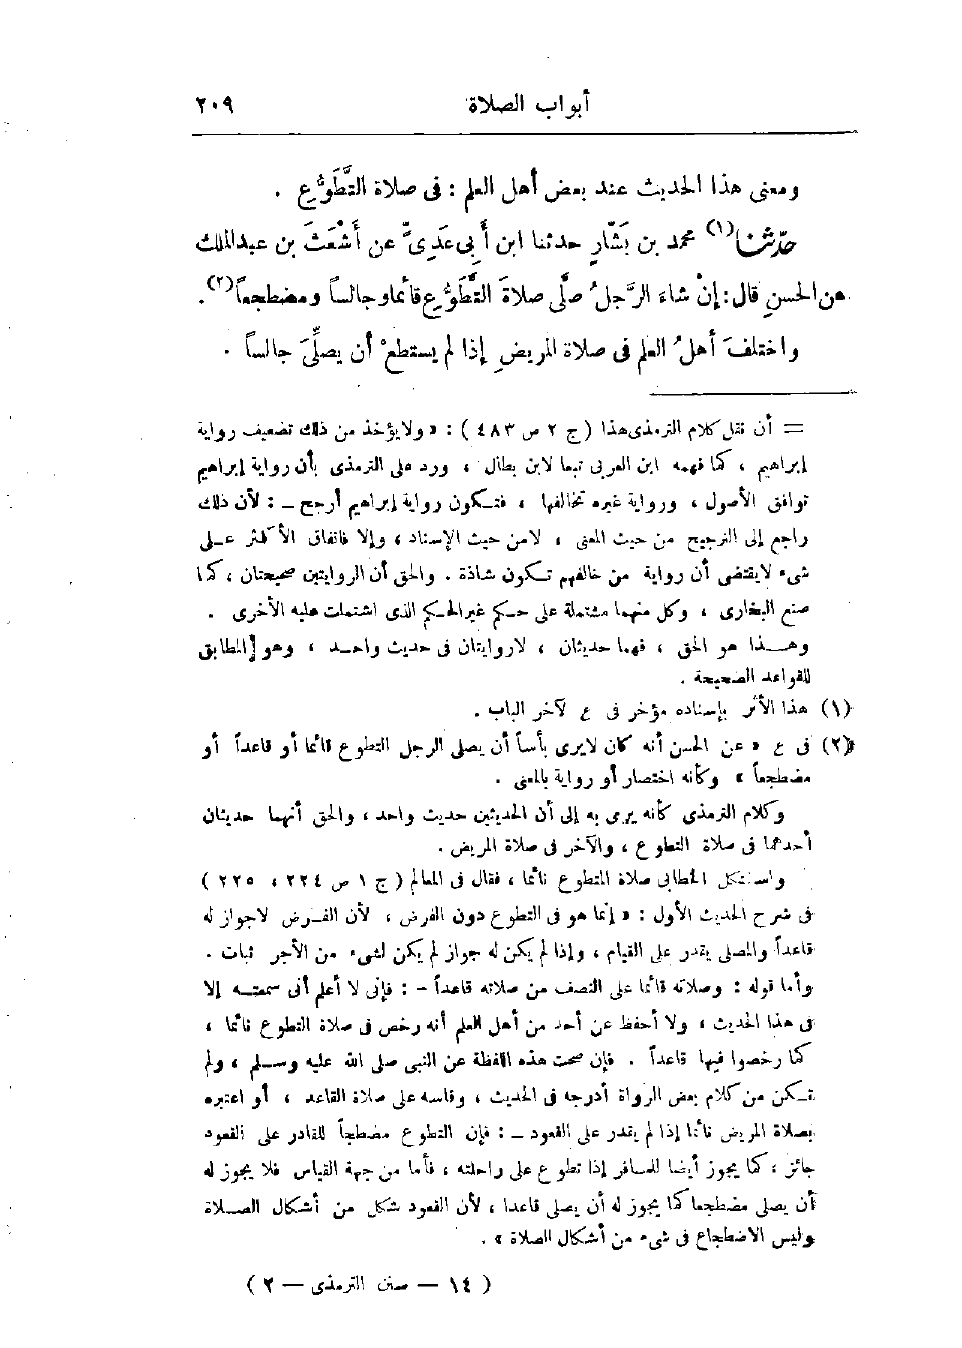 أبواب الصلاة ٢٠٩
ومعنى هذا الحديث عند بعض أهل العلم : فى صلاة التَّطَوُّعِ .
حدّثنا(١) محمد بن بَشَّارٍ حدثنا ابن أَبِى عَدِىٍّ عن أَشْعَثَ بن عبد الملك
عن الحسنِ قال : إنْ شاءَ الرَّجلُ صلَّى صلاةَ التَّطَوُّعِ قائما وجالساً ومضطجعاً(٢).
واختلفَ أهلُ العلمِ فى صلاة المريضِ إذا لم يستطعْ أن يصلِّىَ جالساً .
= أن نقل كلام الترمذى هذا ( ج ٢ ص ٤٨٣ ) : « ولا يؤخذ من ذلك تضعيف رواية
إبراهيم ، كما فهمه ابن العربى تبعا لابن بطال ، ورد على الترمذى بأن رواية إبراهيم
توافق الأصول ، ورواية غيره تخالفها ، فتكون رواية إبراهيم أرجح ــ : لأن ذلك
راجع إلى الترجيح من حيث المعنى ، لا من حيث الإسناد ، وإلا فاتفاق الأكثر على
شىء لا يقتضى أن رواية من خالفهم تكون شاذة . والحق أن الروايتين صحيحتان ، كما
صنع البخارى ، وكل منهما مشتملة على حكم غير الحكم الذى اشتملت عليه الأخرى .
وهذا هو الحق ، فهما حديثان ، لا روايتان فى حديث واحد ، وهو المطابق
للقواعد الصحيحة .
(١) هذا الأثر بإسناده مؤخر فى ع لآخر الباب .
(٢) فى ع « عن الحسن أنه كان لا يرى بأساً أن يصلى الرجل التطوع قائما أو قاعداً أو
مضطجعاً » وكأنه اختصار أو رواية بالمعنى .
وكلام الترمذى كأنه يرى به إلى أن الحديثين حديث واحد ، والحق أنهما حديثان
أحدهما فى صلاة التطوع ، والآخر فى صلاة المريض .
واستشكل الخطابى صلاة المتطوع نائما ، فقال فى المعالم ( ج ١ ص ٢٢٤ ، ٢٢٥ )
فى شرح الحديث الأول : « إنما هو فى التطوع دون الفرض ، لأن الفرض لا جواز له
قاعداً والمصلى يقدر على القيام ، وإذا لم يكن له جواز لم يكن لشىء من الأجر ثبات .
وأما قوله : وصلاته نائما على النصف من صلاته قاعداً - : فإنى لا أعلم أنى سمعته إلا
فى هذا الحديث ، ولا أحفظ عن أحد من أهل العلم أنه رخص فى صلاة التطوع نائما ،
كما رخصوا فيها قاعداً . فإن صحت هذه اللفظة عن النبى صلى الله عليه وسلم ، ولم
تكن من كلام بعض الرواة أدرجه فى الحديث ، وقاسه على صلاة القاعد ، أو اعتبره
بصلاة المريض نائما إذا لم يقدر على القعود ــ : فإن التطوع مضطجعاً للقادر على القعود
جائز ، كما يجوز أيضا للمسافر إذا تطوع على راحلته ، فأما من جهة القياس فلا يجوز له
أن يصلى مضطجعا كما يجوز له أن يصلى قاعدا ، لأن القعود شكل من أشكال الصلاة
وليس الاضطجاع فى شىء من أشكال الصلاة » .
( ١٤ — سنن الترمذى — ٢ )